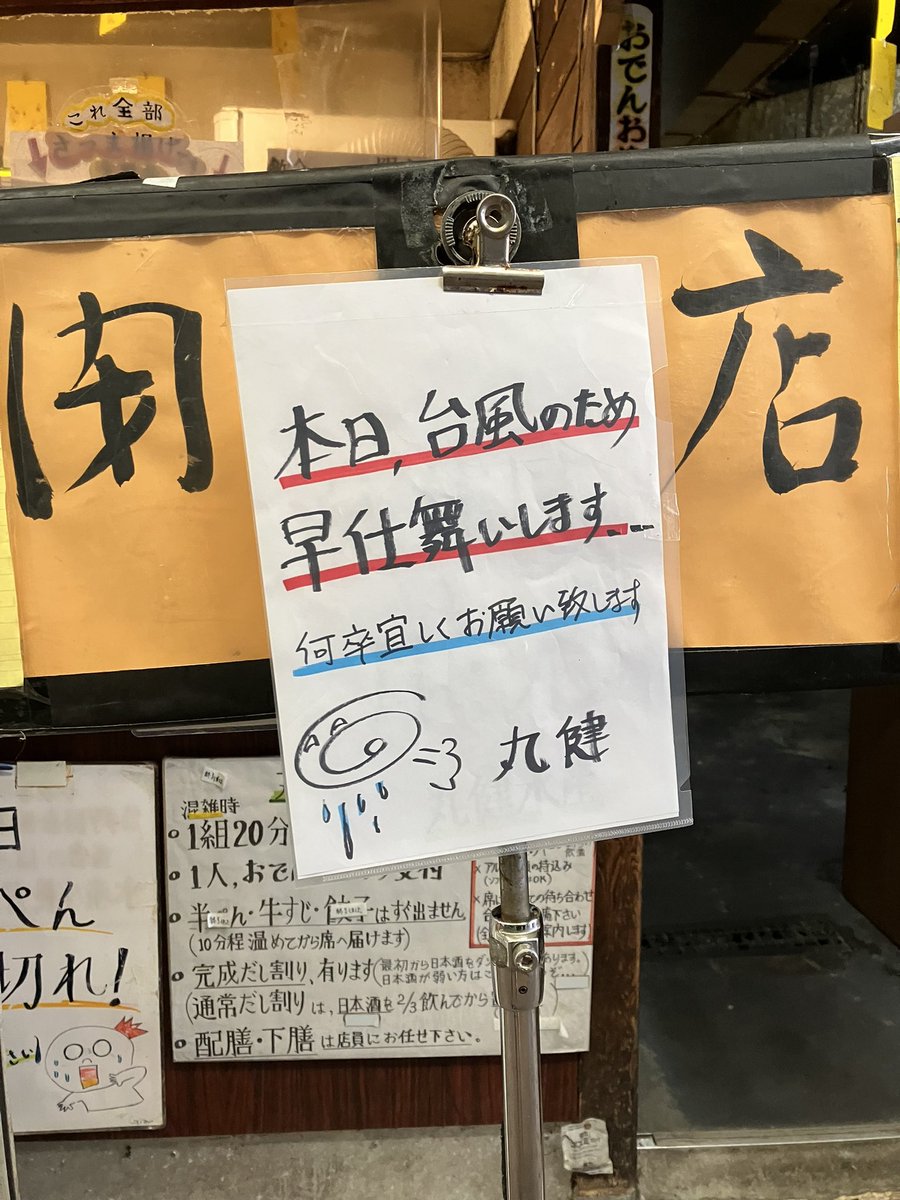 これ全部
さつま揚げ
おでんお
閉店
本日,台風のため
早仕舞いします…
何卒宜しくお願い致します
丸健
日
ぺん
切れ!
混雑時
1組20分
1人,おで
半ぺん・牛すじ・餃子はすぐ出ません
(10分程温めてから席へ届けます)
完成だし割り、有ります(最初から日本酒を
日本酒が弱い方は
(通常だし割りは、日本酒を2/3飲んでから
配膳・下膳は店員にお任せ下さい。
の持込み
OK)
×席
の待ち合わせ
下さい
案内します)